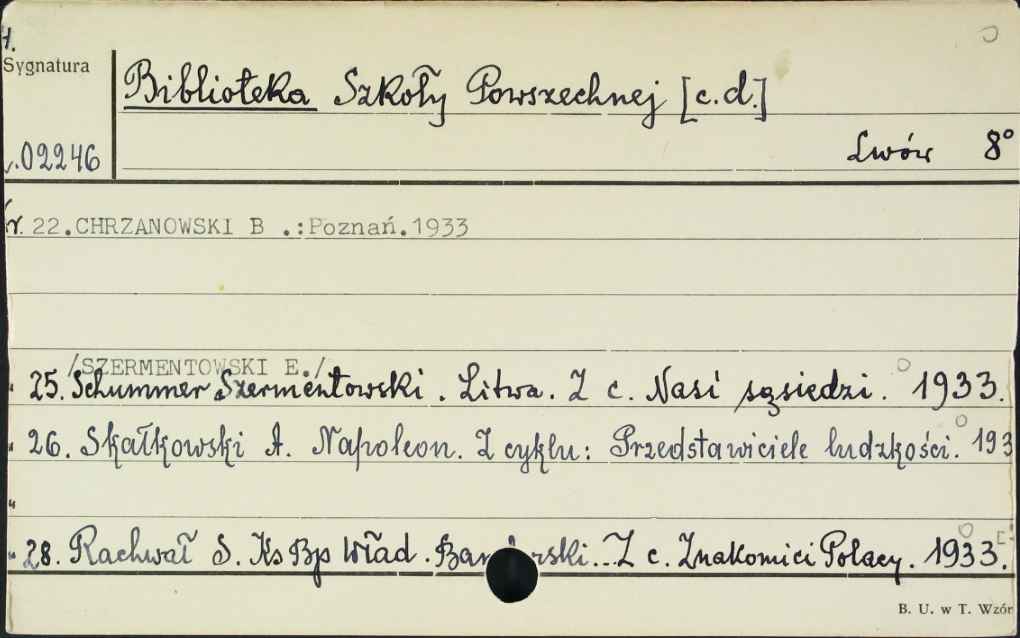 Sygnatura
Biblioteka Szkoły Powszechnej [c.d.]
02246
Lwów 8°
22. CHRZANOWSKI B .:Poznań.1933
/SZERMENTOWSKI E./
" 25. Schummer Szermentowski. Litwa. Z c. Nasi sąsiedzi. 1933.
" 26. Skałkowski A. Napoleon. Z cyklu: Przedstawiciele ludzkości. 193
"
" 28. Rachwał S. Ks Bp Wład. Z c. Znakomici Polacy. 1933.
B. U. w T. Wzór